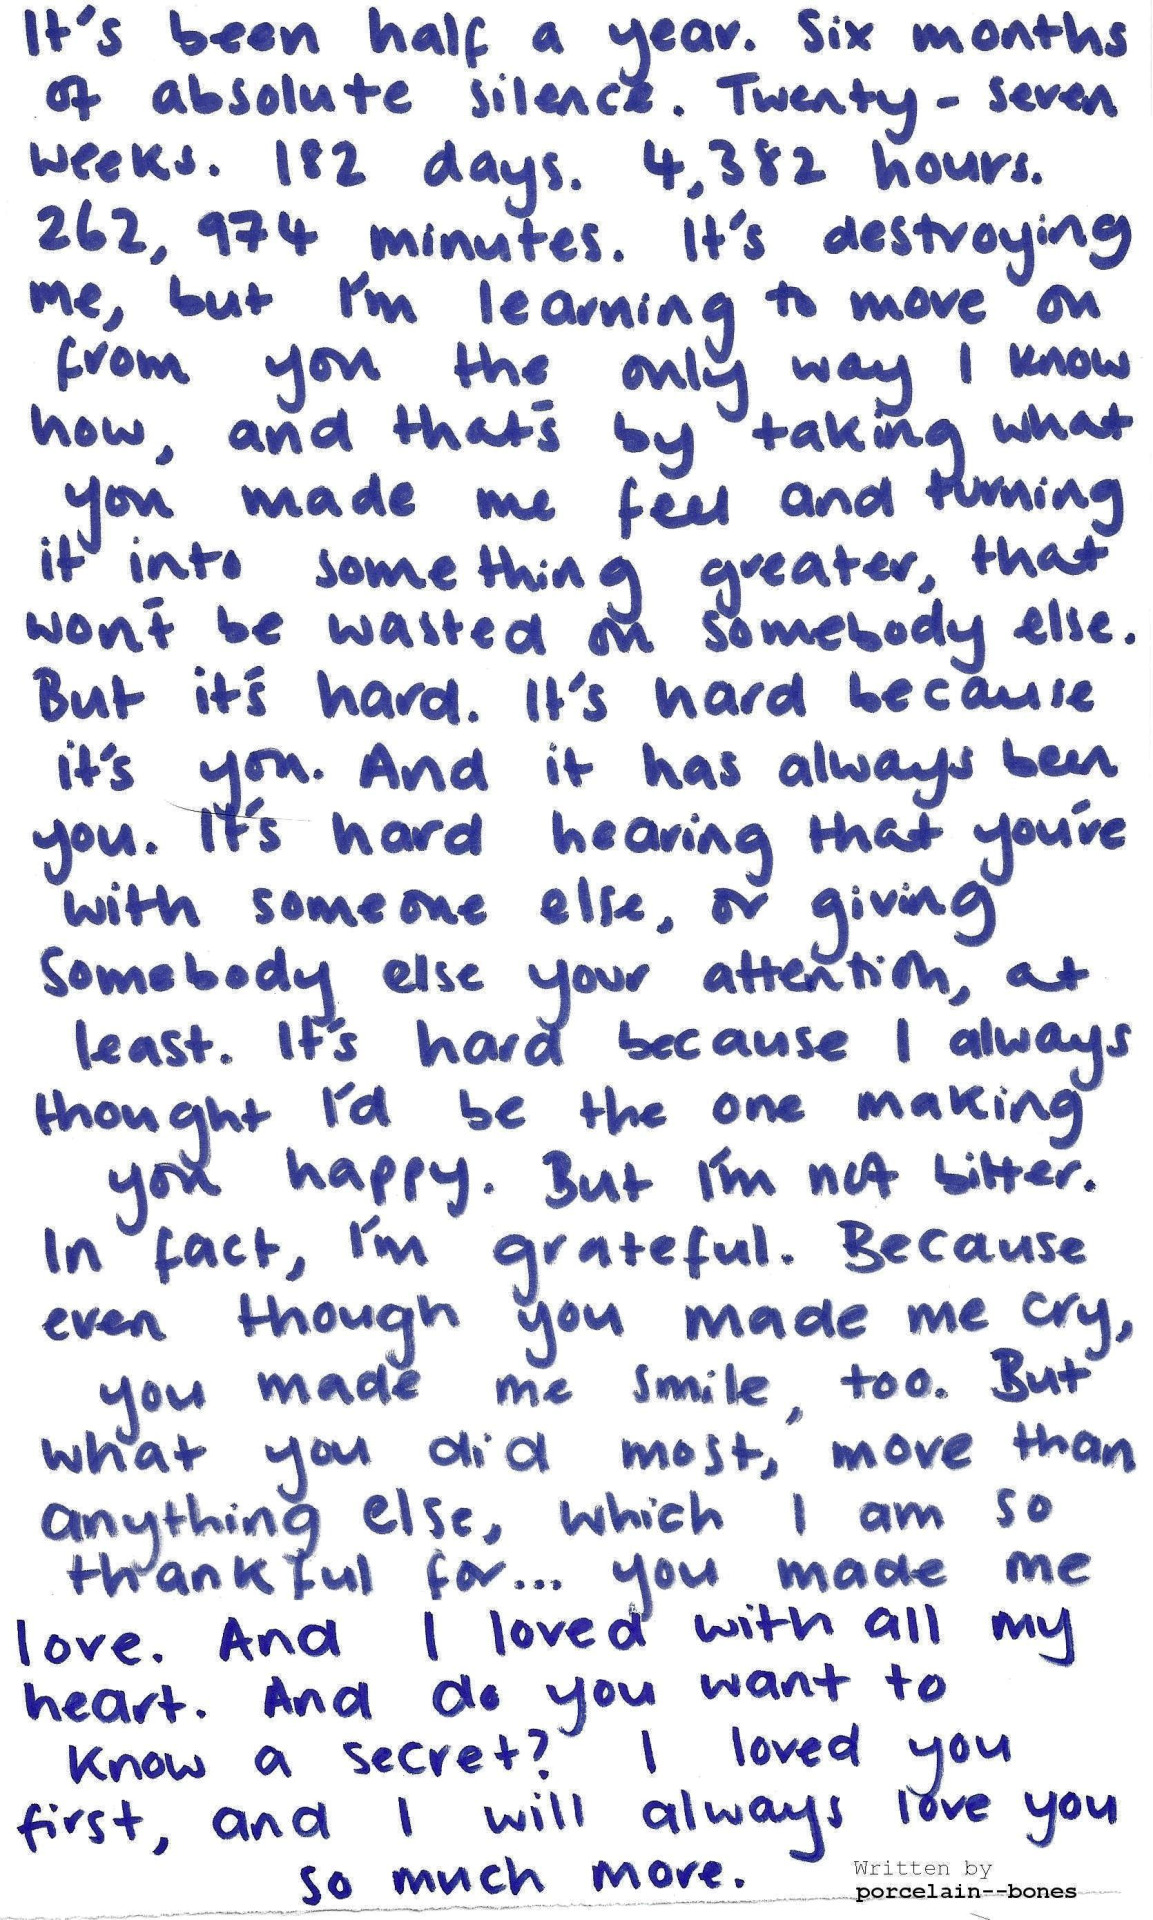 It's been half a year. Six months
of absolute silence. Twenty-seven
weeks. 182 days. 4,382 hours.
262,974 minutes. It's destroying
me, but I'm learning to move on
from you the only way I know
how, and that's by taking what
you made me feel and turning
it into something greater, that
won't be wasted on somebody else.
But it's hard. It's hard because
it's you. And it has always been
you. It's hard hearing that you're
with someone else, or giving
somebody else your attention, at
least. It's hard because I always
thought I'd be the one making
you happy. But I'm not bitter.
In fact, I'm grateful. Because
even though you made me cry,
you made me smile, too. But
what you did most, more than
anything else, which I am so
thankful for... you made me
love. And I loved with all my
heart. And do you want to
know a secret? I loved you
first, and I will always love you
so much more.
Written by
porcelain--bones